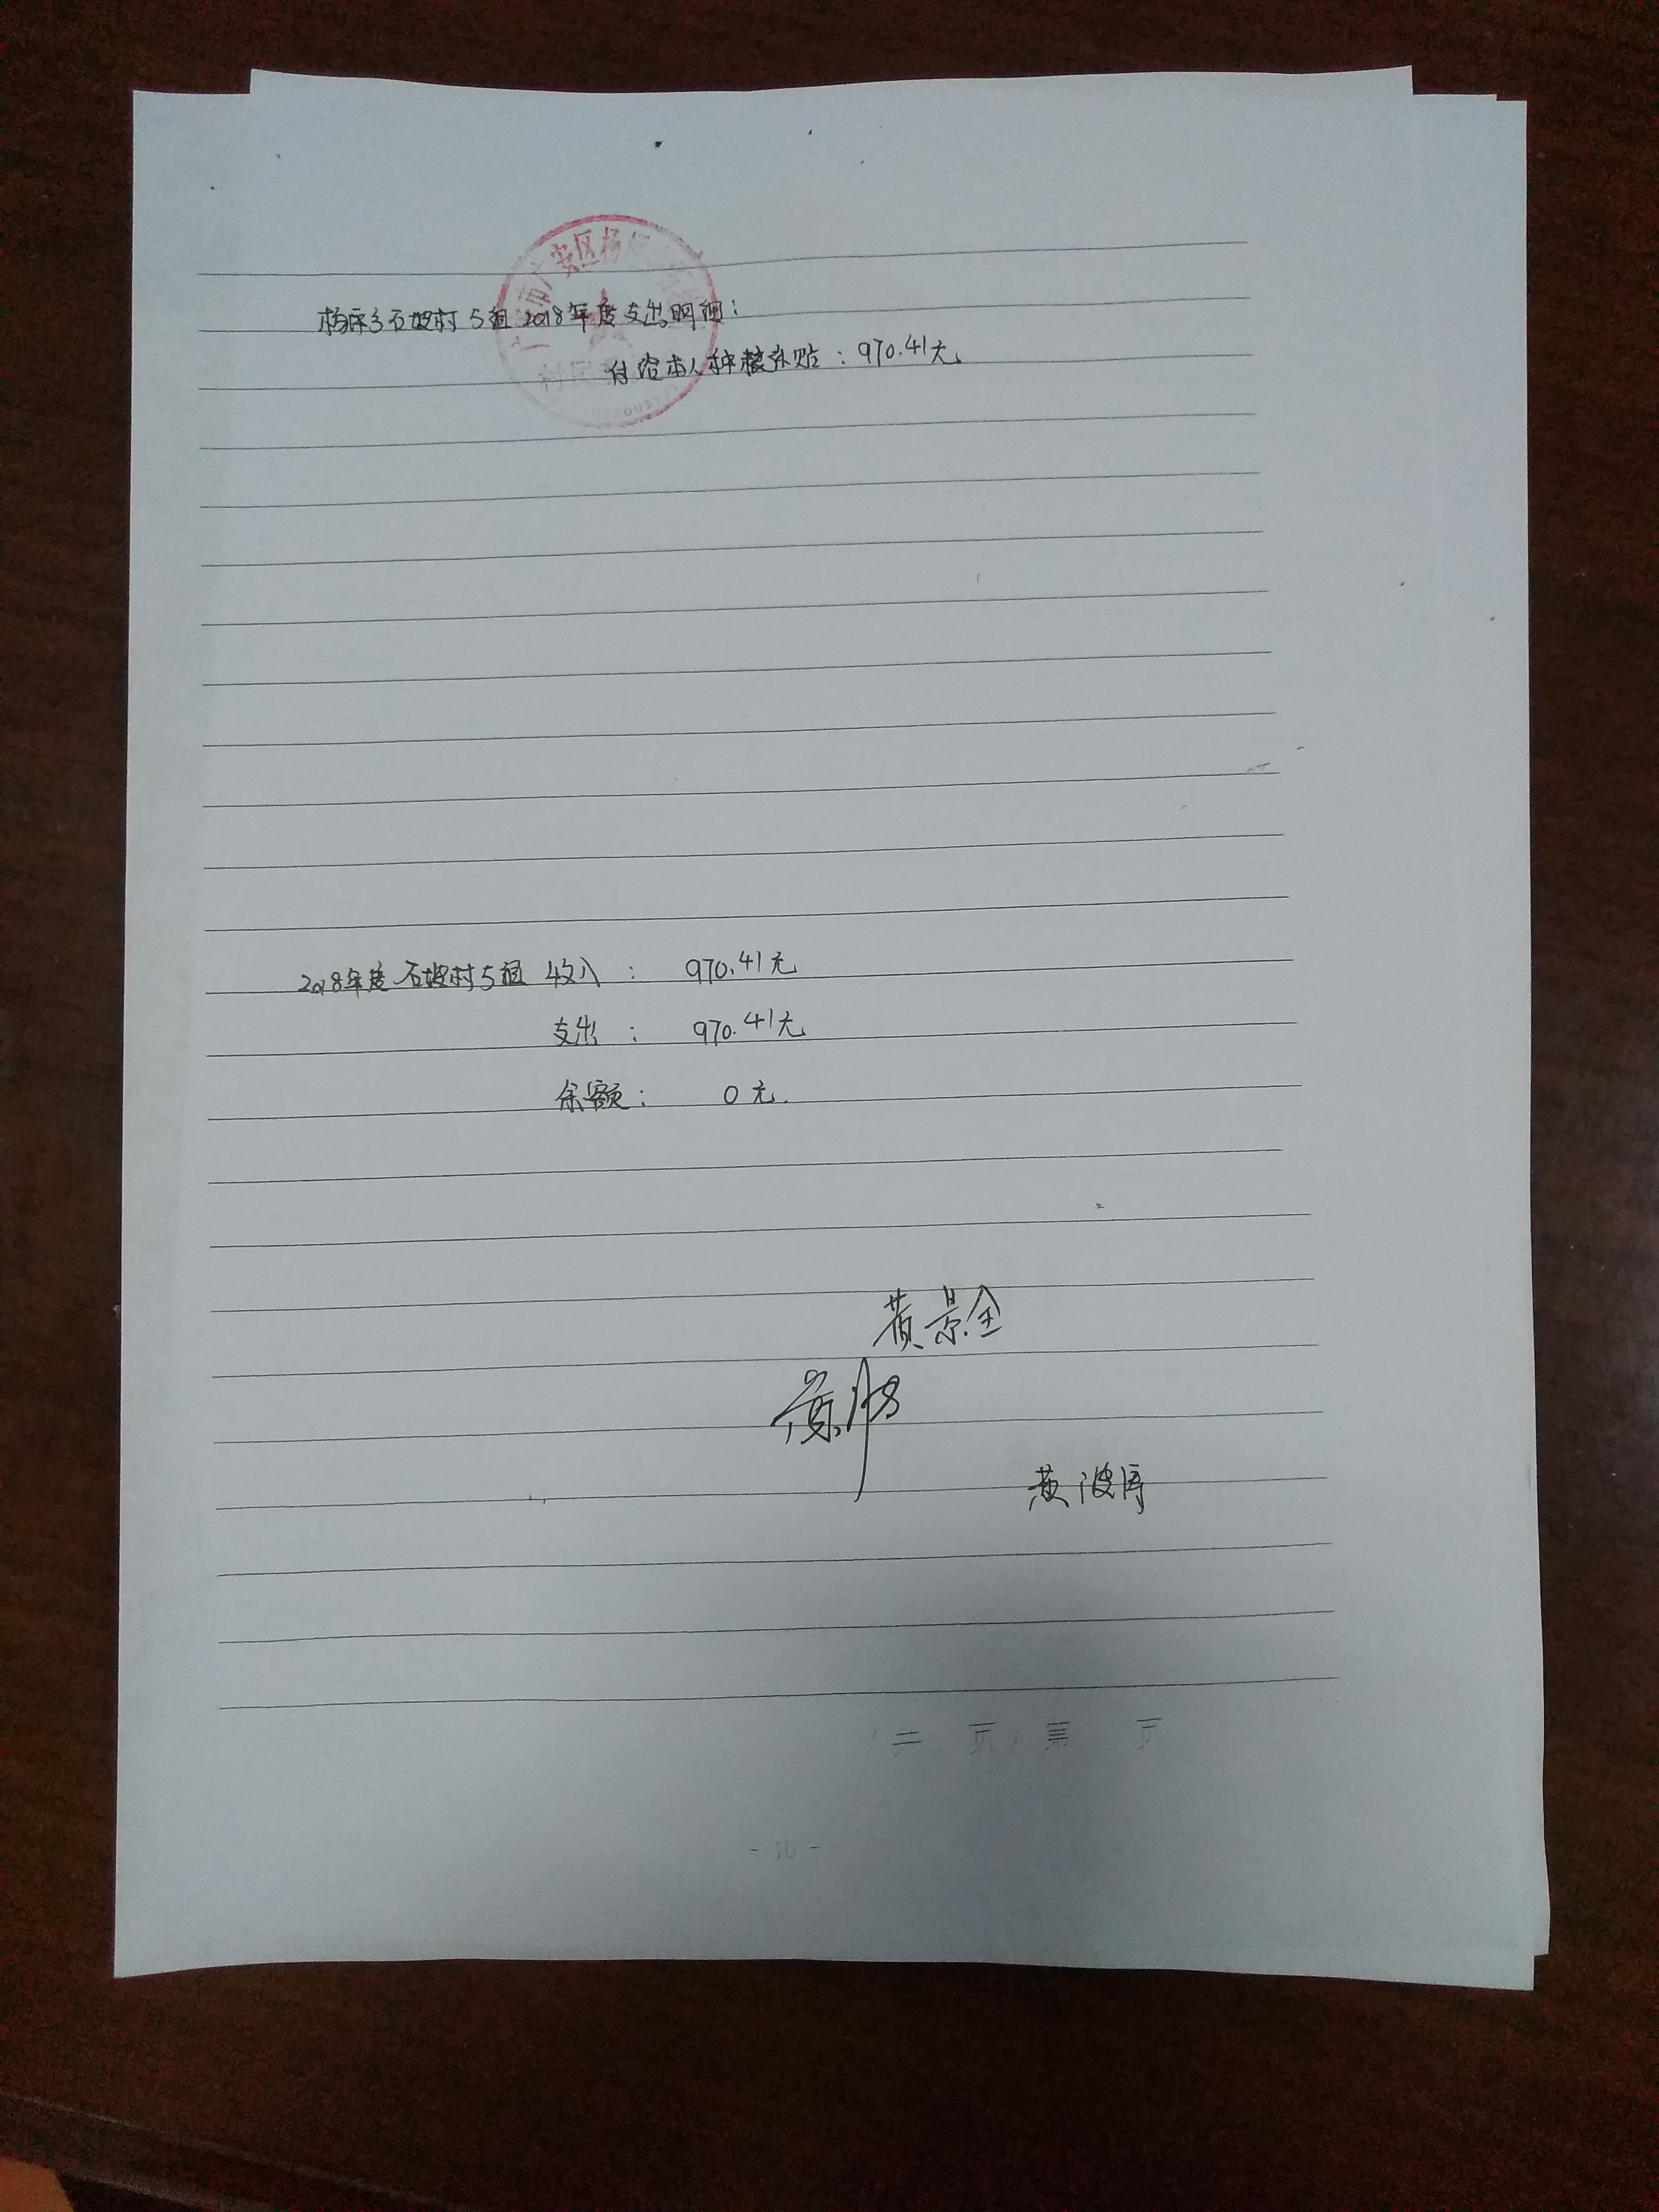 杨坪乡石坡村5组2018年度支出明细:
付给本人种粮补贴:970.41元
2018年度石坡村5组收入: 970.41元
支出: 970.41元
余额: 0元.
黄景全
黄波涛
共 页 第 页
- 10 -